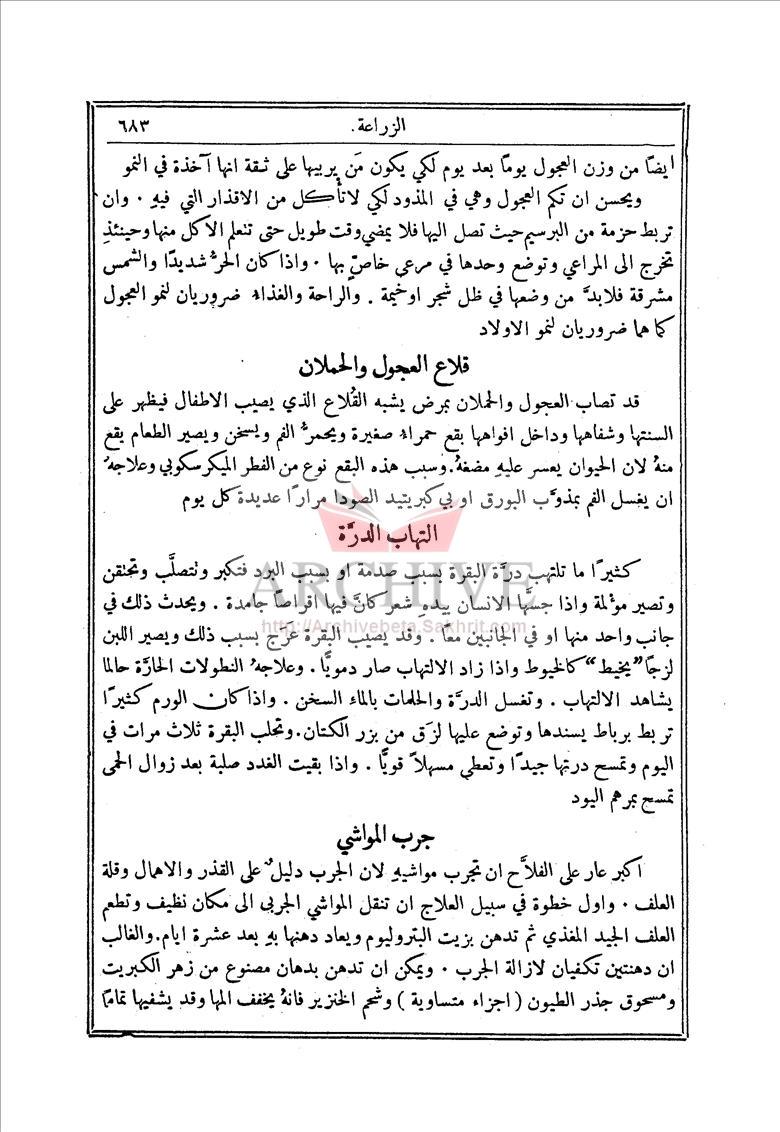 الزراعة. ٦٨٣
ايضًا من وزن العجول يومًا بعد يوم لكي يكون مَن يربيها على ثقة انها آخذة في النمو
ويحسن ان تكم العجول وهي في المذود لكي لا تأكل من الاقذار التي فيهِ ٠ وان
تربط حزمة من البرسيم حيث تصل اليها فلا يمضي وقت طويل حتى تنعلم الاكل منها وحينئذٍ
تخرج الى المراعي وتوضع وحدها في مرعى خاصّ بها ٠ واذا كان الحرُّ شديدًا والشمس
مشرقة فلا بدَّ من وضعها في ظل شجر او خيمة . والراحة والغذاء ضروريان لنمو العجول
كما هما ضروريان لنمو الاولاد
قلاع العجول والحملان
قد تصاب العجول والحملان بمرض يشبه القُلاع الذي يصيب الاطفال فيظهر على
السنتها وشفاهها وداخل افواهها بقع حمراءُ صغيرة ويحمرُّ الفم ويسخن ويصير الطعام يقع
منهُ لان الحيوان يعسر عليهِ مضغهُ.وسبب هذه البقع نوع من الفطر الميكرسكوبي وعلاجهُ
ان يغسل الفم بمذوَّب البورق او بي كبريتيد الصودا مرارًا عديدة كل يوم
التهاب الدرَّة
كثيرًا ما تلتهب درَّة البقرة بسبب صدمة او بسبب البرد فتكبر وتتصلَّب وتحتقن
وتصير مؤلمة واذا جسَّها الانسان بيدهِ شعر كانَّ فيها اقراصًا جامدة . ويحدث ذلك في
جانب واحد منها او في الجانبين معًا . وقد يصيب البقرة عَرَج بسبب ذلك ويصير اللبن
لزجًا "يخيط" كالخيوط واذا زاد الالتهاب صار دمويًّا . وعلاجهُ النطولات الحارَّة حالما
يشاهد الالتهاب . وتغسل الدرَّة والحلمات بالماء السخن . واذا كان الورم كثيرًا
تربط برباط يسندها وتوضع عليها لزَق من بزر الكتان.وتحلب البقرة ثلاث مرات في
اليوم وتمسح درتها جيدًا وتعطى مسهلاً قويًّا . واذا بقيت الغدد صلبة بعد زوال الحمى
تمسح بمرهم اليود
جرب المواشي
اكبر عار على الفلاَّح ان تجرب مواشيهِ لان الجرب دليلٌ على القذر والاهمال وقلة
العلف ٠ واول خطوة في سبيل العلاج ان تنقل المواشي الجربى الى مكان نظيف وتطعم
العلف الجيد المغذي ثم تدهن بزيت البتروليوم ويعاد دهنها بهِ بعد عشرة ايام.والغالب
ان دهنتين تكفيان لازالة الجرب ٠ ويمكن ان تدهن بدهان مصنوع من زهر الكبريت
ومسحوق جذر الطيون (اجزاء متساوية) وشحم الخنزير فانهُ يخفف المها وقد يشفيها تمامًا
ARCHIVE
http://Archivebeta.Sakhrit.com